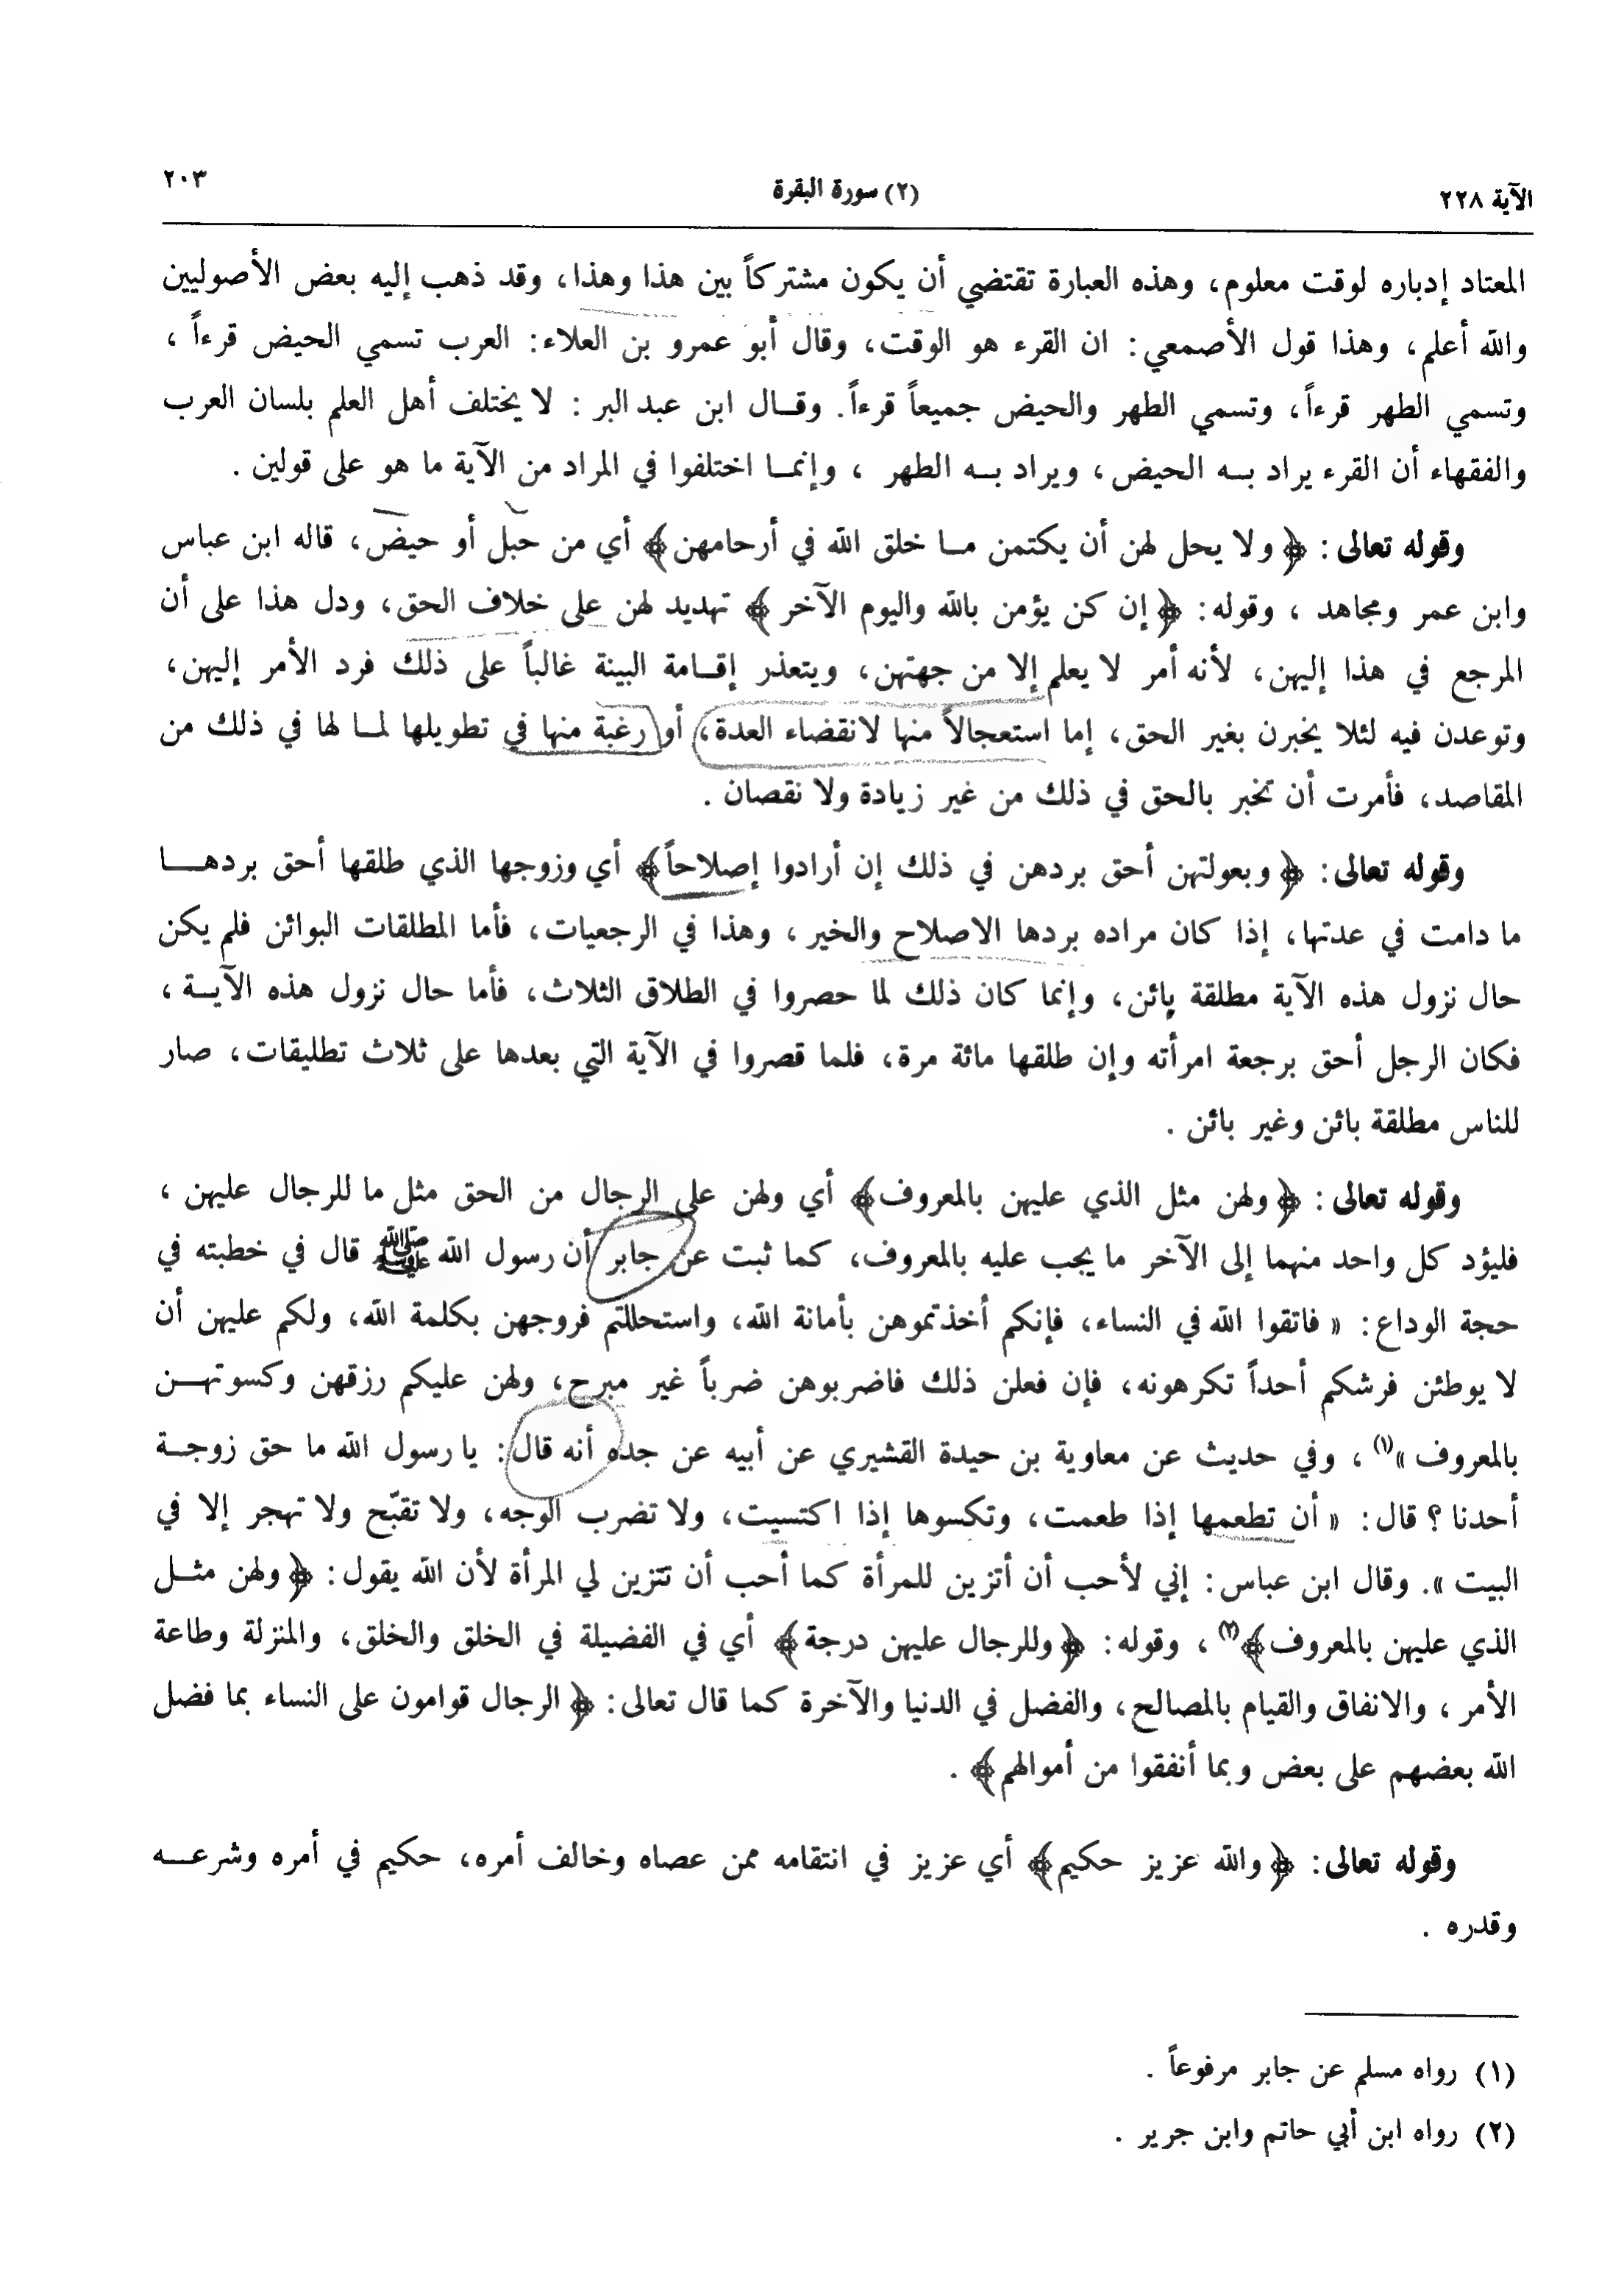 الآية ٢٢٨
(٢) سورة البقرة
٢٠٣
المعتاد إدباره لوقت معلوم، وهذه العبارة تقتضي أن يكون مشتركاً بين هذا وهذا، وقد ذهب إليه بعض الأصوليين
والله أعلم، وهذا قول الأصمعي: ان القرء هو الوقت، وقال أبو عمرو بن العلاء: العرب تسمي الحيض قرءاً ،
وتسمي الطهر قرءاً، وتسمي الطهر والحيض جميعاً قرءاً. وقال ابن عبد البر : لا يختلف أهل العلم بلسان العرب
والفقهاء أن القرء يراد به الحيض، ويراد به الطهر ، وإنما اختلفوا في المراد من الآية ما هو على قولين .
وقوله تعالى: ﴿ولا يحل لهن أن يكتمن ما خلق الله في أرحامهن﴾ أي من حبل أو حيض، قاله ابن عباس
وابن عمر ومجاهد ، وقوله: ﴿إن كن يؤمن بالله واليوم الآخر﴾ تهديد لهن على خلاف الحق، ودل هذا على أن
المرجع في هذا إليهن، لأنه أمر لا يعلم إلا من جهتهن، ويتعذر إقامة البينة غالباً على ذلك فرد الأمر إليهن،
وتوعدن فيه لئلا يخبرن بغير الحق، إما استعجالاً منها لانقضاء العدة، أو رغبة منها في تطويلها لما لها في ذلك من
المقاصد، فأمرت أن تخبر بالحق في ذلك من غير زيادة ولا نقصان .
وقوله تعالى: ﴿وبعولتهن أحق بردهن في ذلك إن أرادوا إصلاحاً﴾ أي وزوجها الذي طلقها أحق بردها
ما دامت في عدتها، إذا كان مراده بردها الاصلاح والخير ، وهذا في الرجعيات، فأما المطلقات البوائن فلم يكن
حال نزول هذه الآية مطلقة بائن، وإنما كان ذلك لما حصروا في الطلاق الثلاث، فأما حال نزول هذه الآية ،
فكان الرجل أحق برجعة امرأته وإن طلقها مائة مرة، فلما قصروا في الآية التي بعدها على ثلاث تطليقات، صار
للناس مطلقة بائن وغير بائن .
وقوله تعالى: ﴿ولهن مثل الذي عليهن بالمعروف﴾ أي ولهن على الرجال من الحق مثل ما للرجال عليهن ،
فليؤد كل واحد منهما إلى الآخر ما يجب عليه بالمعروف، كما ثبت عن جابر أن رسول الله ﷺ قال في خطبته في
حجة الوداع: « فاتقوا الله في النساء، فإنكم أخذتموهن بأمانة الله، واستحللتم فروجهن بكلمة الله، ولكم عليهن أن
لا يوطئن فرشكم أحداً تكرهونه، فإن فعلن ذلك فاضربوهن ضرباً غير مبرح، ولهن عليكم رزقهن وكسوتهن
بالمعروف »(١) ، وفي حديث عن معاوية بن حيدة القشيري عن أبيه عن جده أنه قال: يا رسول الله ما حق زوجة
أحدنا ؟ قال: « أن تطعمها إذا طعمت، وتكسوها إذا اكتسيت، ولا تضرب الوجه، ولا تقبّح ولا تهجر إلا في
البيت ». وقال ابن عباس: إني لأحب أن أتزين للمرأة كما أحب أن تتزين لي المرأة لأن الله يقول: ﴿ولهن مثل
الذي عليهن بالمعروف﴾(٢) ، وقوله: ﴿وللرجال عليهن درجة﴾ أي في الفضيلة في الخلق والخلق، والمنزلة وطاعة
الأمر ، والانفاق والقيام بالمصالح، والفضل في الدنيا والآخرة كما قال تعالى: ﴿الرجال قوامون على النساء بما فضل
الله بعضهم على بعض وبما أنفقوا من أموالهم﴾ .
وقوله تعالى: ﴿والله عزيز حكيم﴾ أي عزيز في انتقامه ممن عصاه وخالف أمره، حكيم في أمره وشرعه
وقدره .
(١) رواه مسلم عن جابر مرفوعاً .
(٢) رواه ابن أبي حاتم وابن جرير .